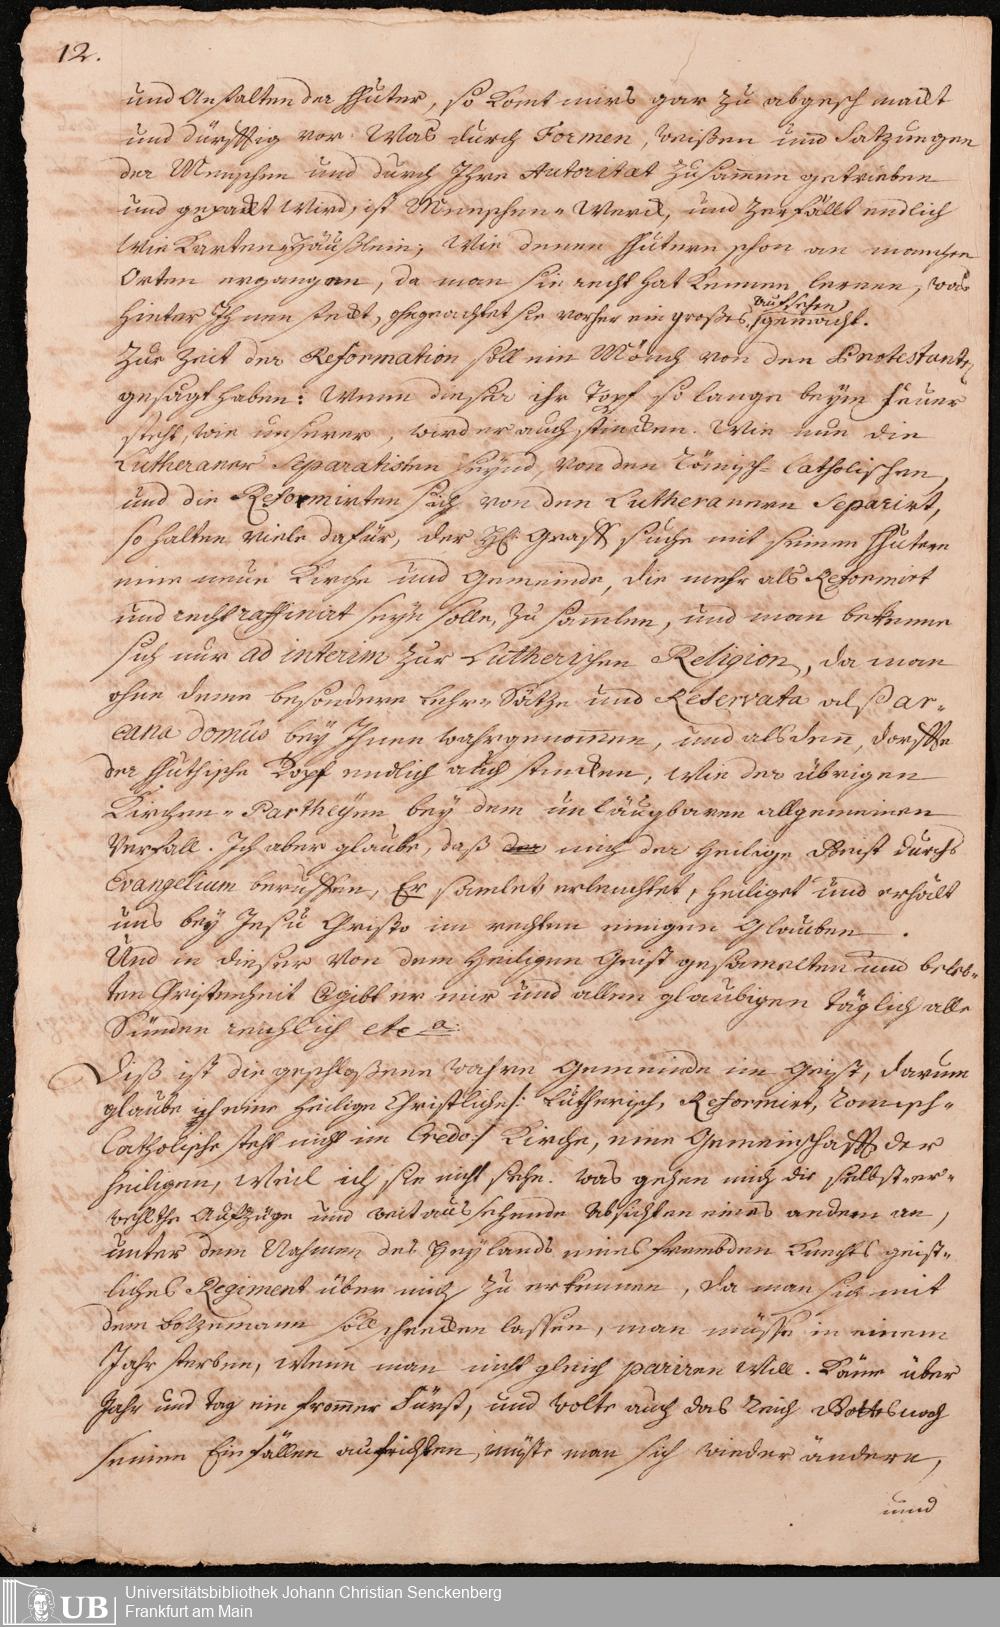 12.
und Anstalten der Huter, so komt mirs gar zu abgeschmackt
und dürfftig vor. Was durch Formen, weisen und Satzungen
der Menschen und durch Ihre Autoritæt zusamen getrieben
und gepackt wird, ist Menschen-Werck, und zerfällt endlich
wie Karten Häußlein; wie denen Hutern schon an manchen
Orten ergangen, da man sie recht hat kennen lernen, was
hinter Ihnen steckt, ohngeachtet sie vorher ein großes aufsehen gemacht.
Zur Zeit der Reformation soll ein Mönch von den Protestanten
gesagt haben: Wenn dieser ihr Topf so lange beym Feuer
steht, wie unserer, wird er auch stincken. Wie nun die
Lutheraner Separatisten seynd, von den Römisch-Catholischen,
und die Reformirten sich von den Lutheranern Separirt,
so halten viele dafür, der H. Graff suche mit seinen Hutern
eine neue Kirche und Gemeinde, die mehr als Reformirt
und recht raffinirt seyn solle, zu samlen, und man bekenne
sich nur ad interim zur Lutherischen Religion, da man
ohne deme besondere Lehr-Sätze und Reservata alß ar-
cana domûs bey Ihnen wahrgenommen, und alsdenn, dorffte
der Huthische Topf endlich auch stincken, wie der übrigen
Kirchen-Partheyen bey dem unläugbaren allgemeinen
Verfall. Ich aber glaube, daß mich der Heilige Geist durchs
Evangelium beruffen, Er samlet, erleuchtet, heiliget und erhält
uns bey Jesu Christo im rechten einigen Glauben.
Und in dieser von dem Heiligen Geist gesamelten und beleb-
ten Cristenheit vergibt er mir und allen glaubigen täglich alle
Sünden reichlich etc a:
Diß ist die geschloßene wahre Gemeinde im Geist, darum
glaube ich eine heilige Christliche /: Lutherisch, Reformirt, Romisch-
Catholische steht nicht im Credo:/ Kirche, eine Gemeinschafft der
heiligen, weil ich sie nicht sehe. was gehen mich die selbst-er-
wehlte Aufzüge und weitaussehende Absichten eines andern an,
unter dem Nahmen des Heylands eines frembden Knechts geist-
liches Regiment über mich zu erkennen, da man sich mit
dem Botzemann soll schrecken lassen, man müsse in einem
Jahr sterben, wenn man nicht gleich pariren will. Käme über
Jahr und Tag ein frommer Fürst, und wolte auch das Reich Gottes nach
seinen Einfällen aufrichten, müste man sich wieder ändern,
und
Universitätsbibliothek Johann Christian Senckenberg
Frankfurt am Main
UB